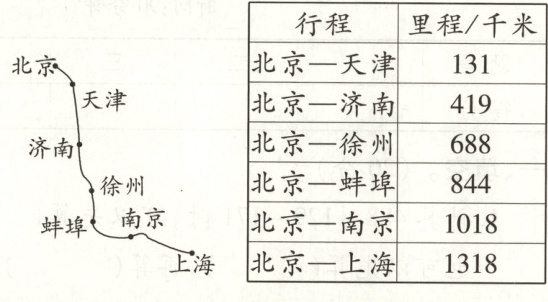 北京
天津
济南
徐州
蚌埠
南京
上海
行程 里程/千米
北京—天津 131
北京—济南 419
北京—徐州 688
北京—蚌埠 844
北京—南京 1018
北京—上海 1318